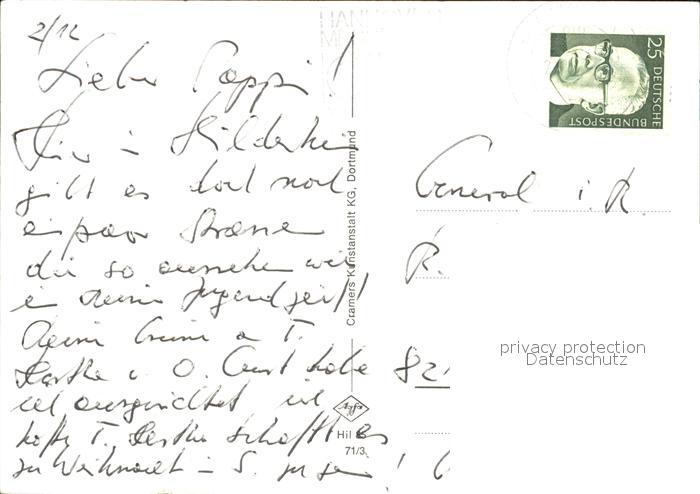 2/12
Lieber Pappi!
Hier in Hildesheim
gibt es doch noch
ein paar Strassen
die so aussehen wie
in deiner Jugendzeit!
Deine Grüsse a. T.
Herthe u. O. Curt habe
ich ausgerichtet ich
hoffe T. Herthe schafft es
zu Weihnacht
HANNOVER
Cramers Kunstanstalt KG, Dortmund
Agfa
Hil
71/3
25 DEUTSCHE
BUNDESPOST
General i. R.
R.
82
privacy protection
Datenschutz